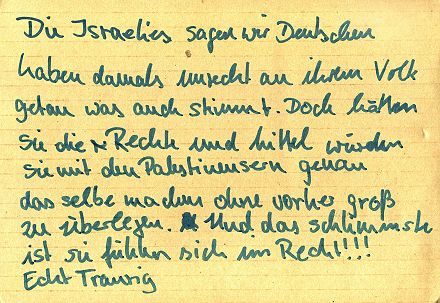 Die Israelies sagen wir Deutschen
haben damals unrecht an ihrem Volk
getan was auch stimmt. Doch hätten
sie die Rechte und Mittel würden
sie mit den Palestinensern genau
das selbe machen ohne vorher groß
zu überlegen. Und das schlimmste
ist sie fühlen sich im Recht!!!
Echt Traurig